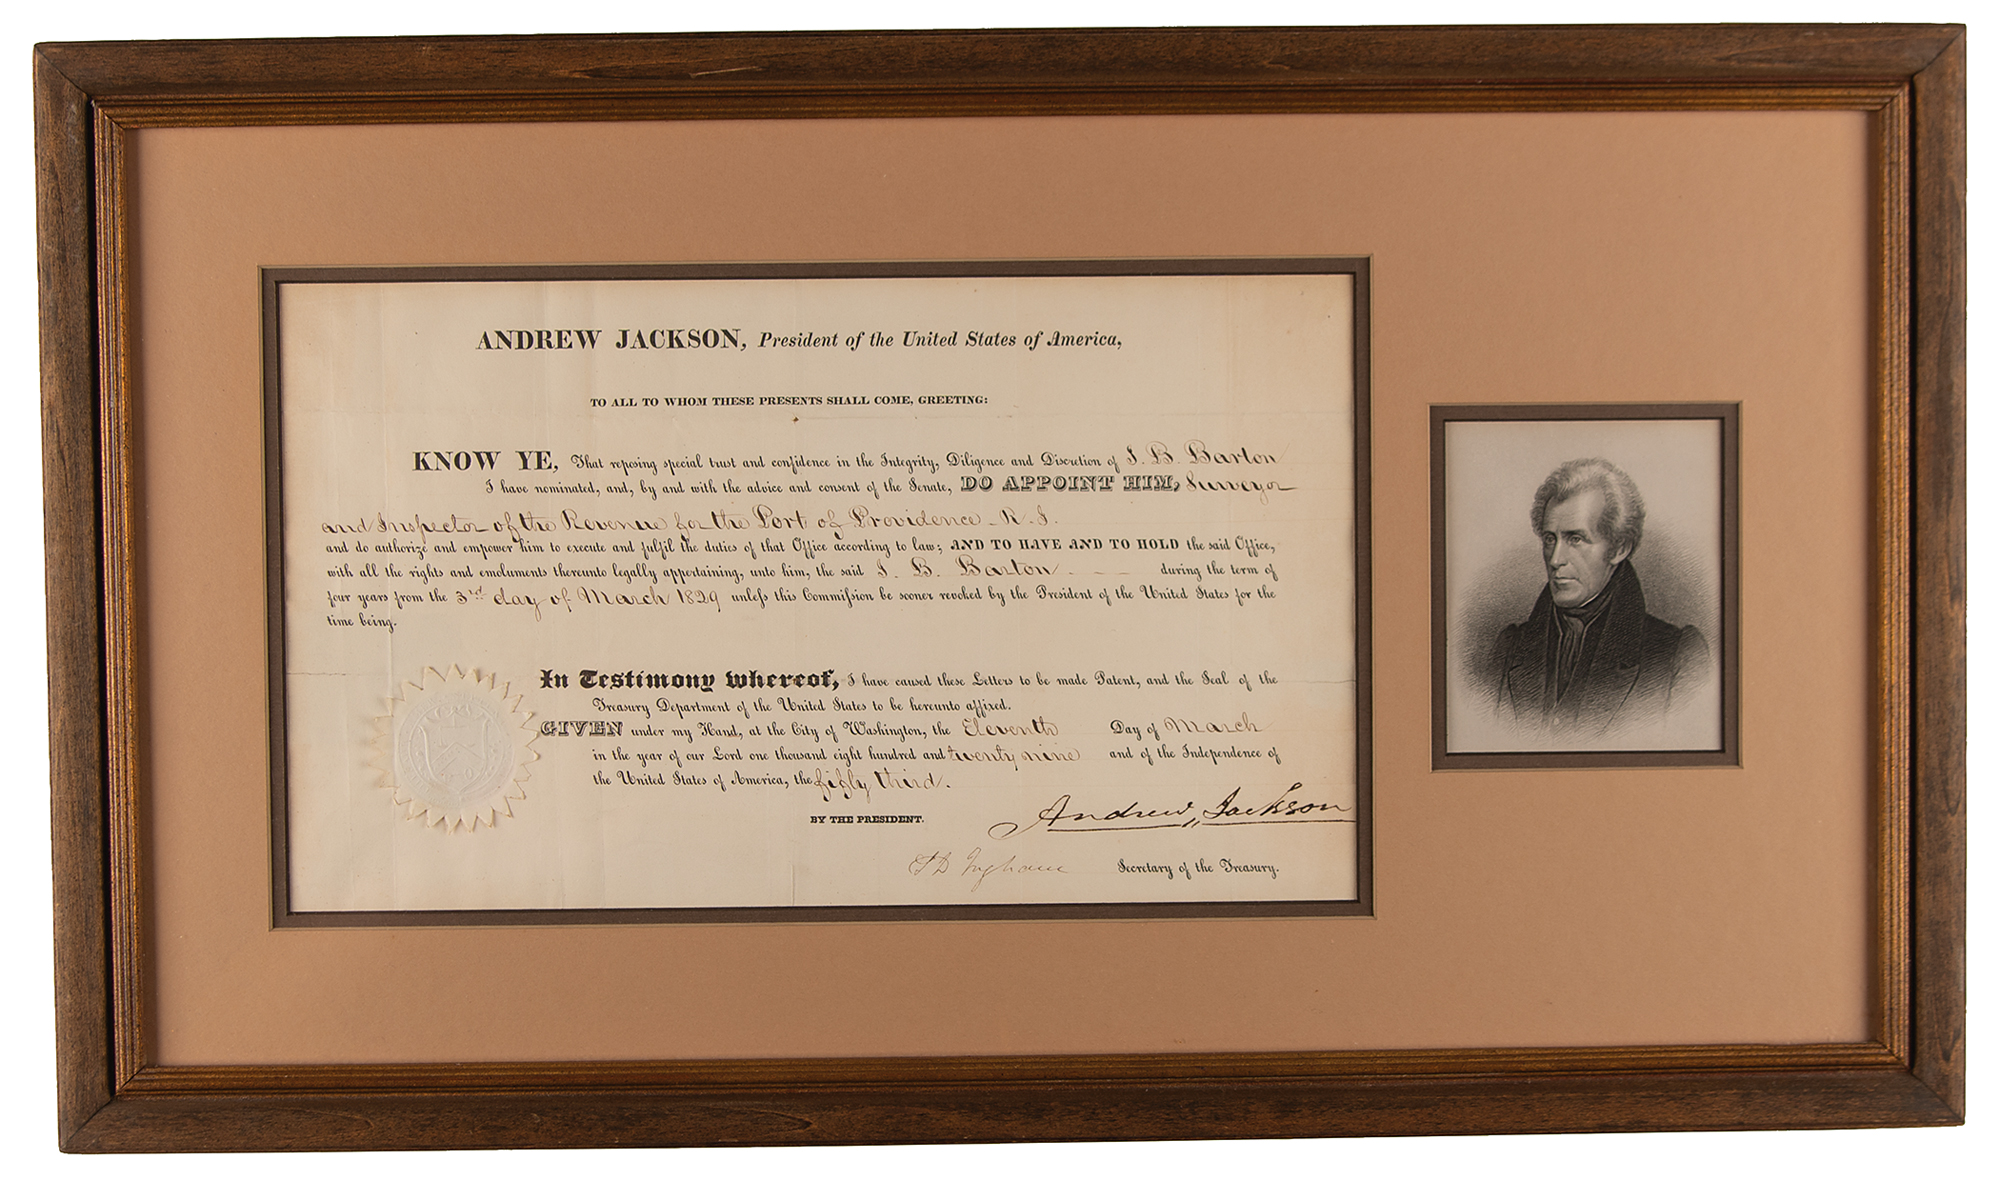 ANDREW JACKSON, President of the United States of America,
TO ALL TO WHOM THESE PRESENTS SHALL COME, GREETING:
KNOW YE, That reposing special trust and confidence in the Integrity, Diligence and Discretion of J. B. Barton
I have nominated, and, by and with the advice and consent of the Senate, DO APPOINT HIM, Surveyor
and Inspector of the Revenue for the Port of Providence - R. I.
and do authorize and empower him to execute and fulfil the duties of that Office according to law; AND TO HAVE AND TO HOLD the said Office,
with all the rights and emoluments thereunto legally appertaining, unto him, the said J. B. Barton during the term of
four years from the 3rd day of March 1829 unless this Commission be sooner revoked by the President of the United States for the
time being.
In Testimony whereof, I have caused these Letters to be made Patent, and the Seal of the
Treasury Department of the United States to be hereunto affixed.
GIVEN under my Hand, at the City of Washington, the Eleventh Day of March
in the year of our Lord one thousand eight hundred and twenty nine and of the Independence of
the United States of America, the fifty third.
Andrew Jackson
BY THE PRESIDENT.
S D Ingham Secretary of the Treasury.